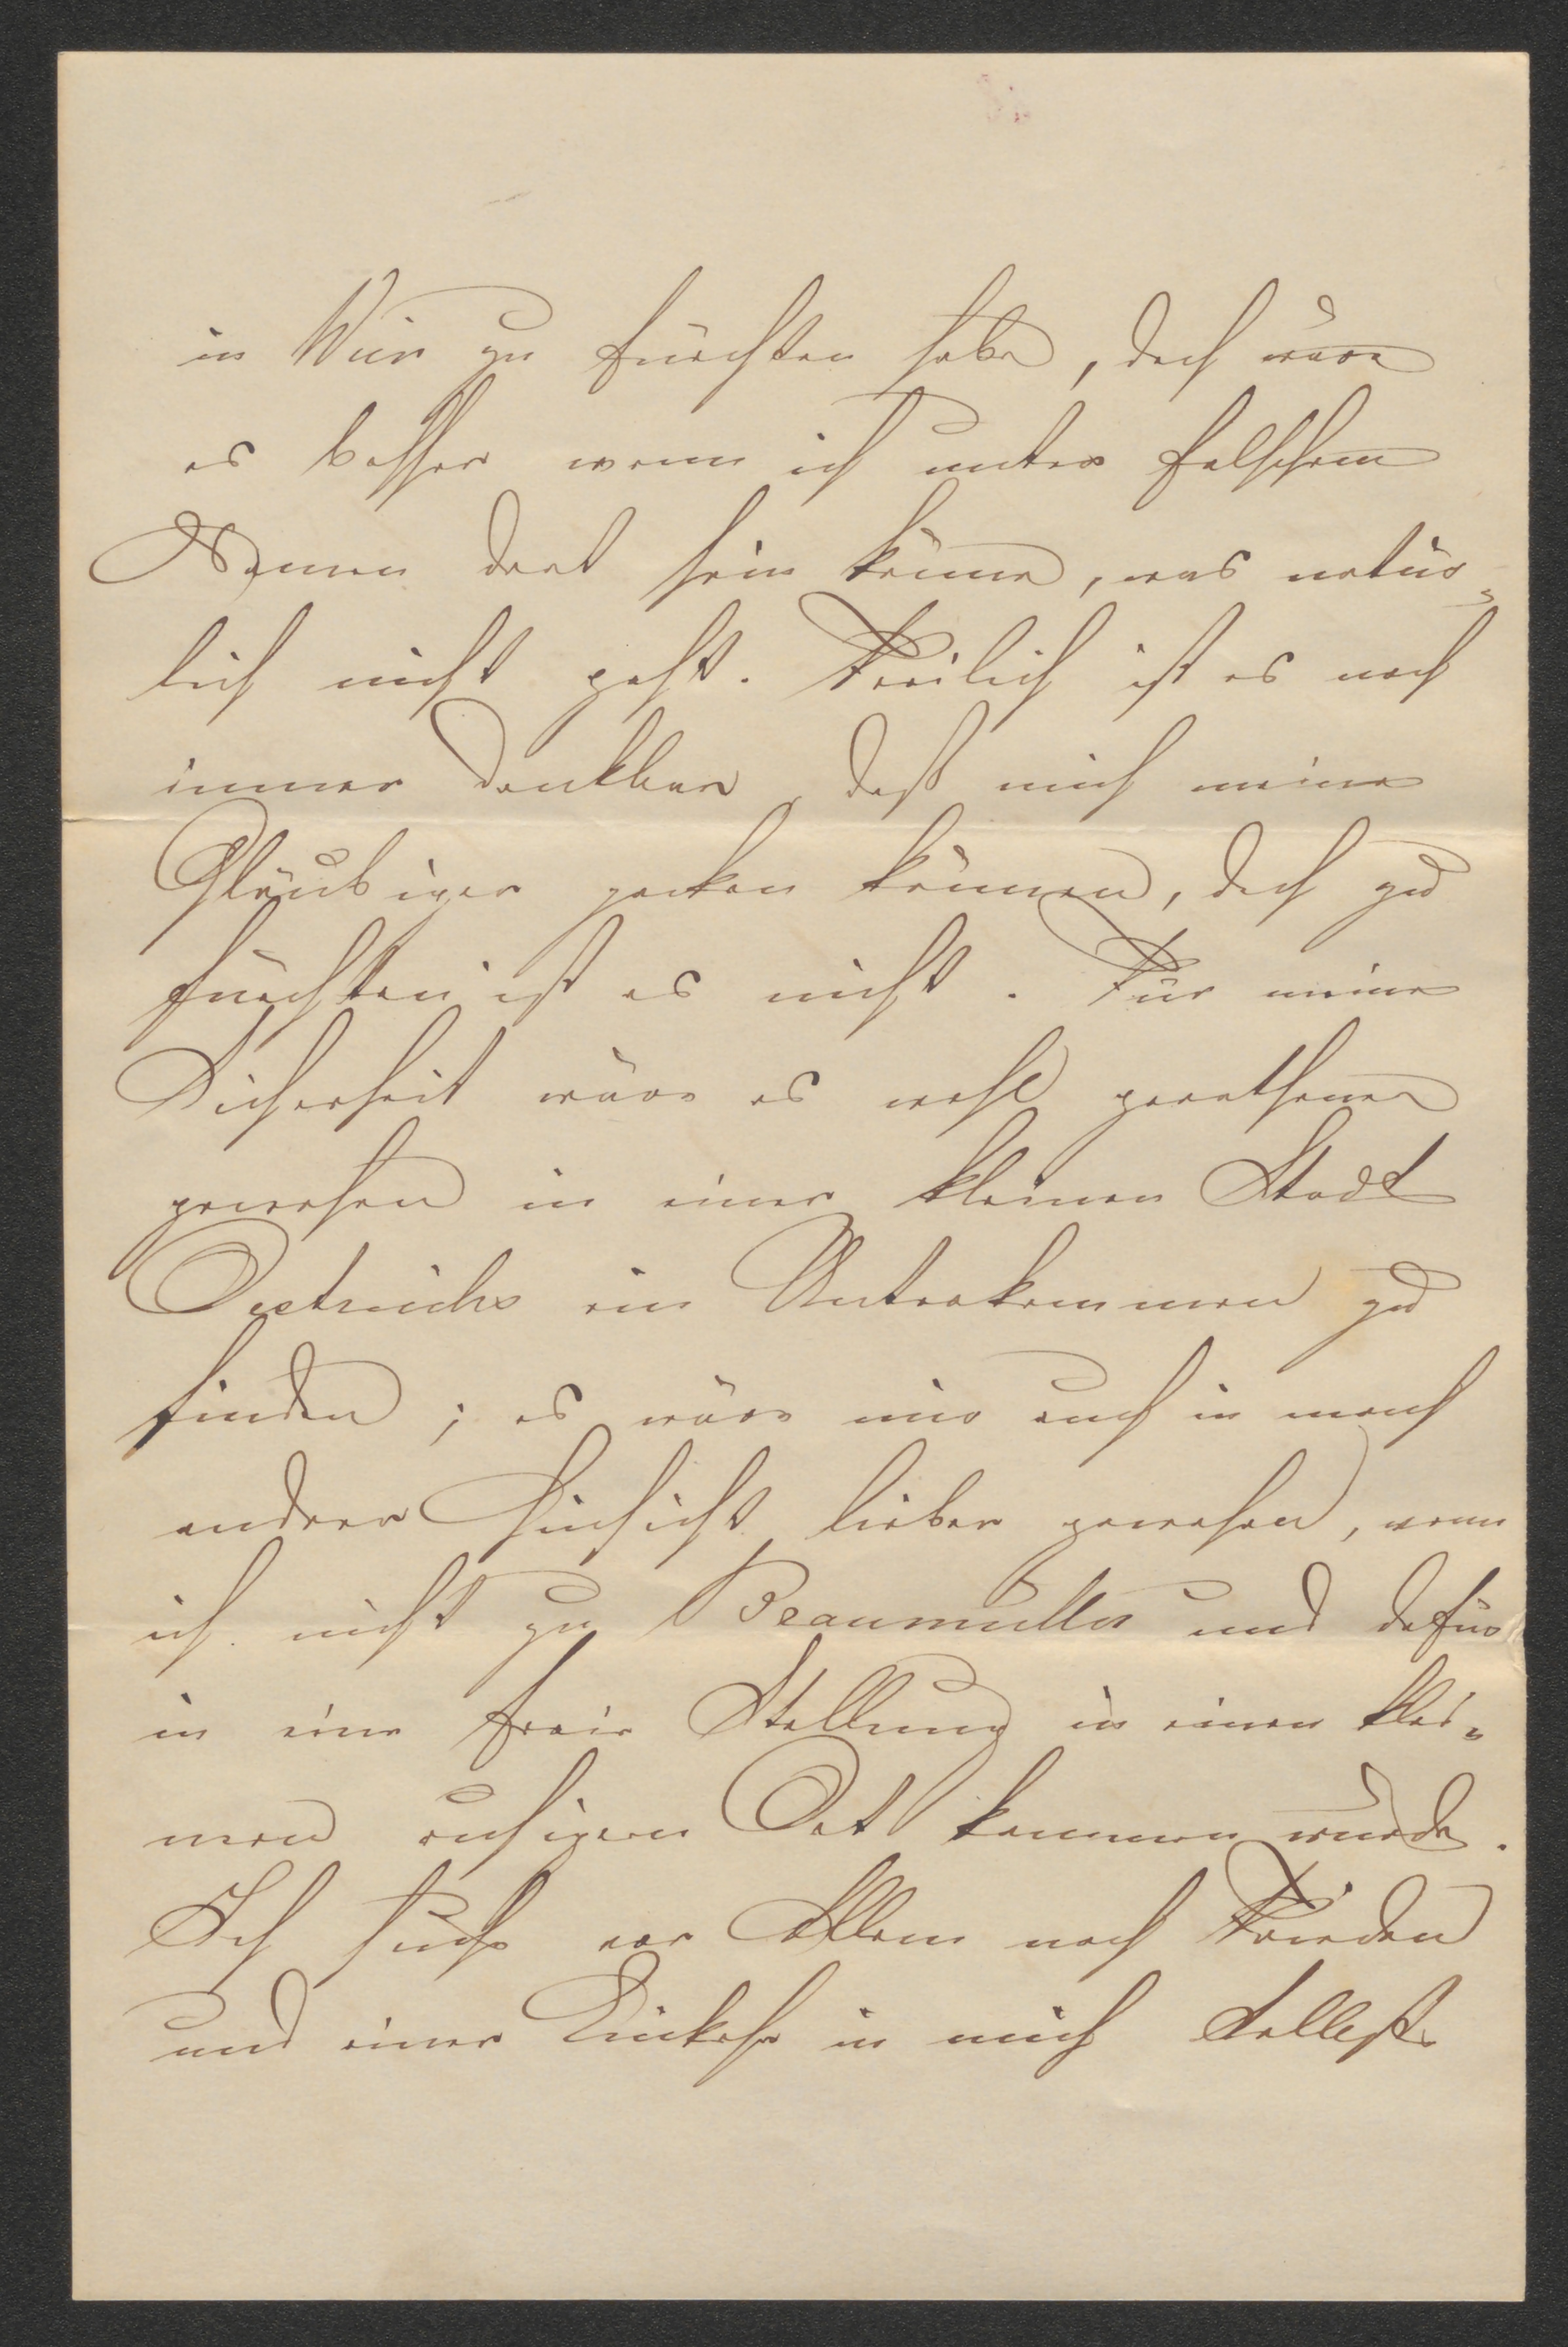 in Wien zu fürchten habe, doch wäre
es besser wenn ich unter falschem
Namen dort sein könne, was natür-
lich nicht geht. Freilich ist es noch
immer denkbar daß mich meine
Gläubiger packen können, doch zu
fürchten ist es nicht. Für meine
Sicherheit wäre es wohl gerathener
gewesen in einer kleinen Stadt
Oestreichs ein Unterkommen zu
finden; es wäre mir auch in manch
andrer Hinsicht lieber gewesen, wenn
ich nicht zu Braumüller und dafür
in eine freie Stellung in einen klei-
nen ruhigen Ort kommen würde.
Ich suche vor Allem nach Frieden
und einer Einkehr in mich selbst